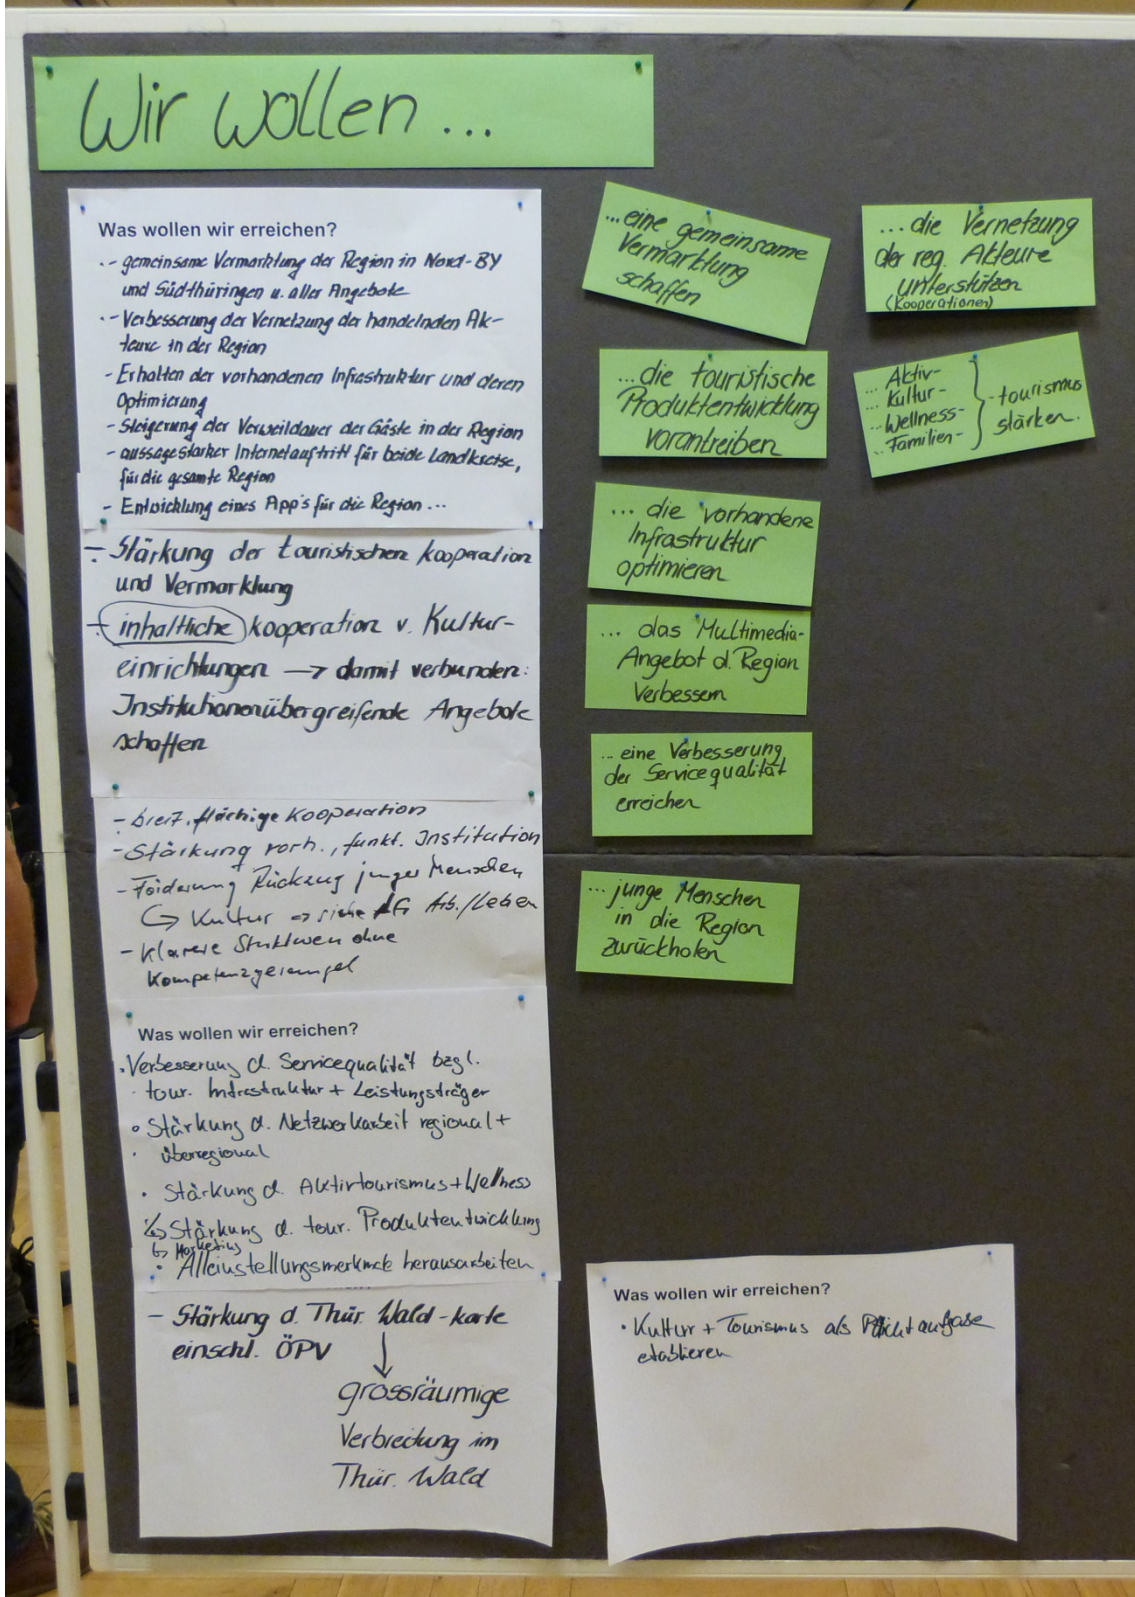 Wir wollen ...
Was wollen wir erreichen?
- gemeinsame Vermarktung der Region in Nord-BY
und Südthüringen u. aller Angebote
- Verbesserung der Vernetzung der handelnden Ak-
teure in der Region
- Erhalten der vorhandenen Infrastruktur und deren
Optimierung
- Steigerung der Verweildauer der Gäste in der Region
- aussagestarker Internetauftritt für beide Landkreise,
für die gesamte Region
- Entwicklung eines App's für die Region ...
- Stärkung der touristischen Kooperation
und Vermarktung
- inhaltliche Kooperation v. Kultur-
einrichtungen → damit verbunden:
Institutionenübergreifende Angebote
schaffen
- breit, flächige Kooperation
- Stärkung vorh., funkt. Institution
- Förderung Rückzug junger Menschen
↳ Kultur ⇒ siehe AG Arb./Leben
- Klarere Strukturen ohne
Kompetenzgerangel
Was wollen wir erreichen?
• Verbesserung d. Servicequalität bzgl.
tour. Infrastruktur + Leistungsträger
• Stärkung d. Netzwerkarbeit regional +
überregional
• Stärkung d. Aktivtourismus + Wellness
↳ Stärkung d. tour. Produktentwicklung
↳ Marketing
• Alleinstellungsmerkmale herausarbeiten
- Stärkung d. Thür. Wald-karte
einschl. ÖPV
↓
grossräumige
Verbreitung im
Thür. Wald
... eine gemeinsame
Vermarktung
schaffen
... die touristische
Produktentwicklung
vorantreiben
... die vorhandene
Infrastruktur
optimieren
... das Multimedia-
Angebot d. Region
verbessern
... eine Verbesserung
der Servicequalität
erreichen
... junge Menschen
in die Region
zurückholen
... die Vernetzung
der reg. Akteure
unterstützen
(Kooperationen)
... Aktiv-
... Kultur-
... Wellness-
... Familien-
} -tourismus
stärken.
Was wollen wir erreichen?
• Kultur + Tourismus als Pflichtaufgabe
etablieren